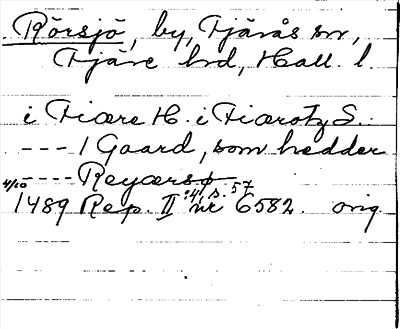 Rörsjö, by, Tjärås sn,
Fjäre hd, Hall. l.
i Fiære H. i Fiærotz S.
--- 1 Gaard, som hedder
---- Reyærsø
4/10 1489 Rep. II :4, s. 57 nr 6582. orig.